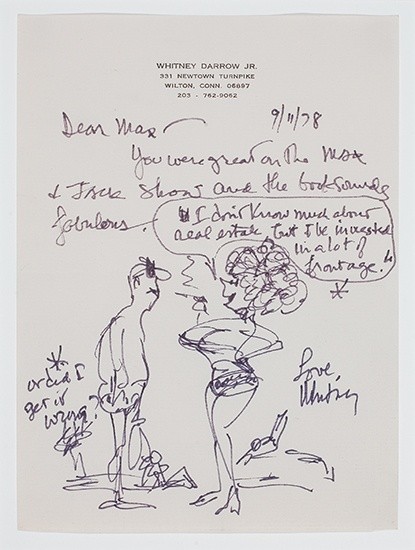 WHITNEY DARROW JR.
331 NEWTOWN TURNPIKE
WILTON, CONN. 06897
203 - 762-9062
9/11/78
Dear Max —
You were great on the Max
& Jack Show and the book sounds
fabulous.
"I don't know much about
real estate, but I've invested
in a lot of
frontage."
*
*
or did I
get it
wrong?
Love,
Whitney